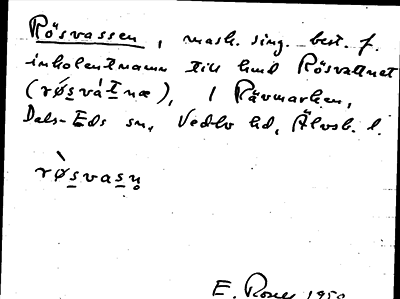 Rösvassen, mask. sing. best. f.
inkolentnamn till hmd Rösvattnet
(rǿs̲vàt̲næ), i Rävmarken,
Dals-Eds sn, Vedbo hd, Älvsb. l.
rø̀s̲vas̲n̥
E. 1950